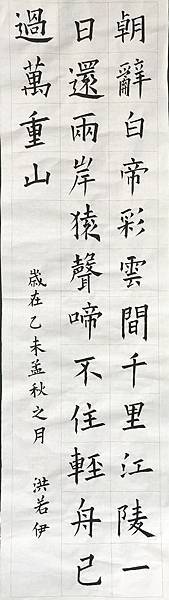 朝辭白帝彩雲間千里江陵一
日還兩岸猿聲啼不住輕舟已
過萬重山
歲在乙未孟秋之月 洪若伊